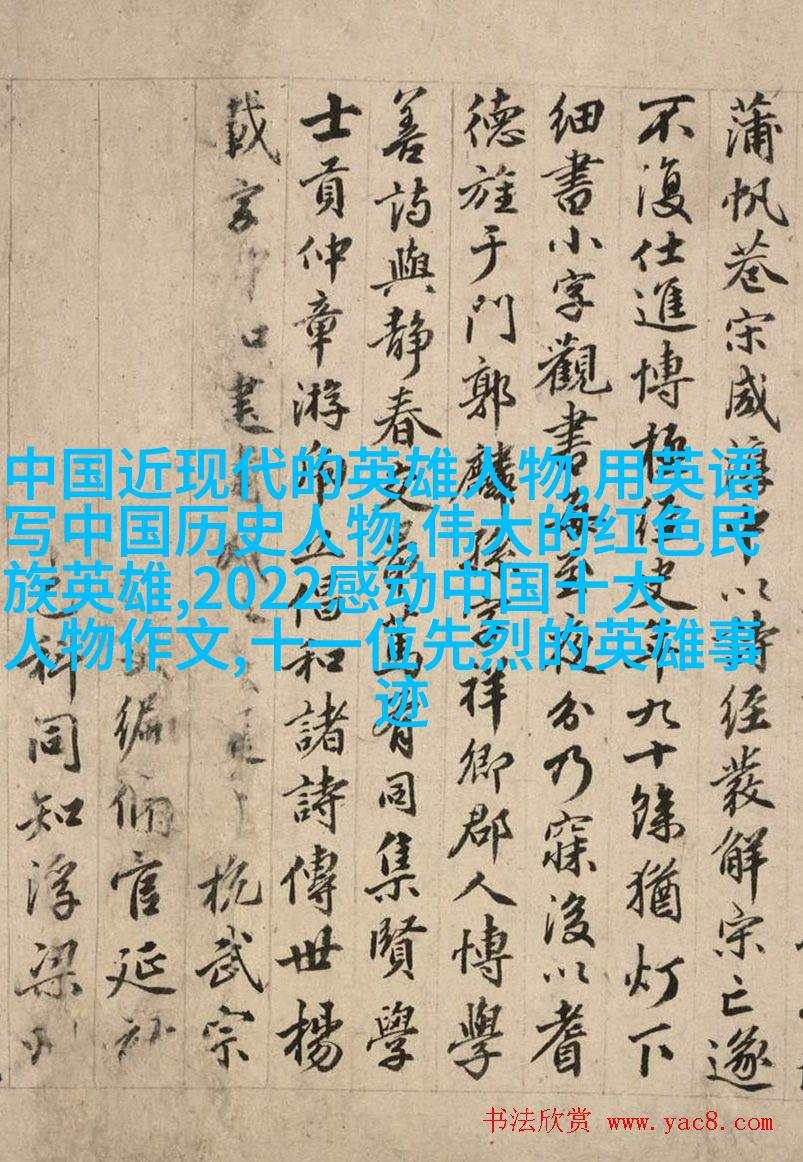 蒲帆巷宋咸淳中以詩經發解宋亡遂
不復仕進博極經史年九十餘猶灯下
細書小字觀書每至夜分乃寐後以耆
德旌于門郭麟孫字祥卿郡人博學
善詩與靜春同集賢學
士貢仲章游倡和諸詩傳世楊
載字杭武宗
編脩官延祐
科同知浮梁州
中国近现代的英雄人物,用英语
写中国历史人物,伟大的红色民
族英雄,2022感动中国十大
人物作文,十一位先烈的英雄事
迹
书法欣赏 www.yac8.com